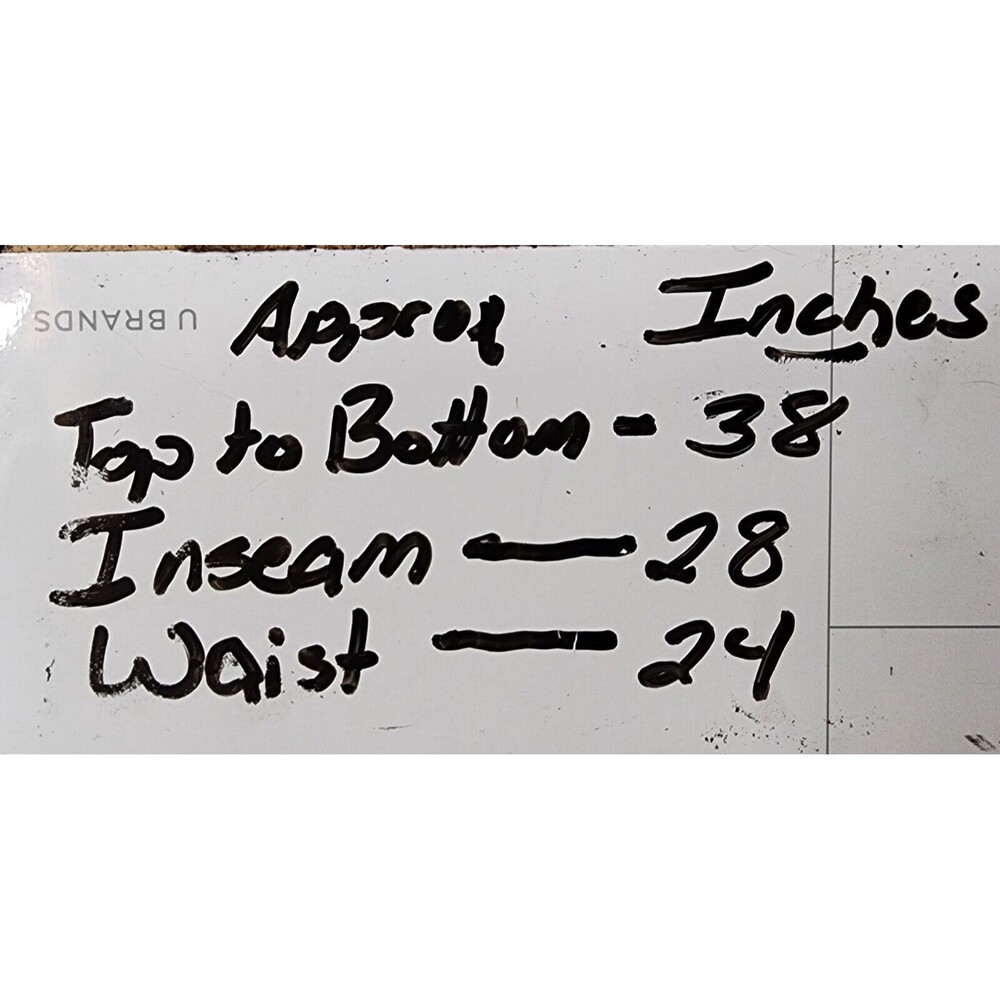 U BRANDS
Approx Inches
Top to Bottom - 38
Inseam — 28
Waist — 24